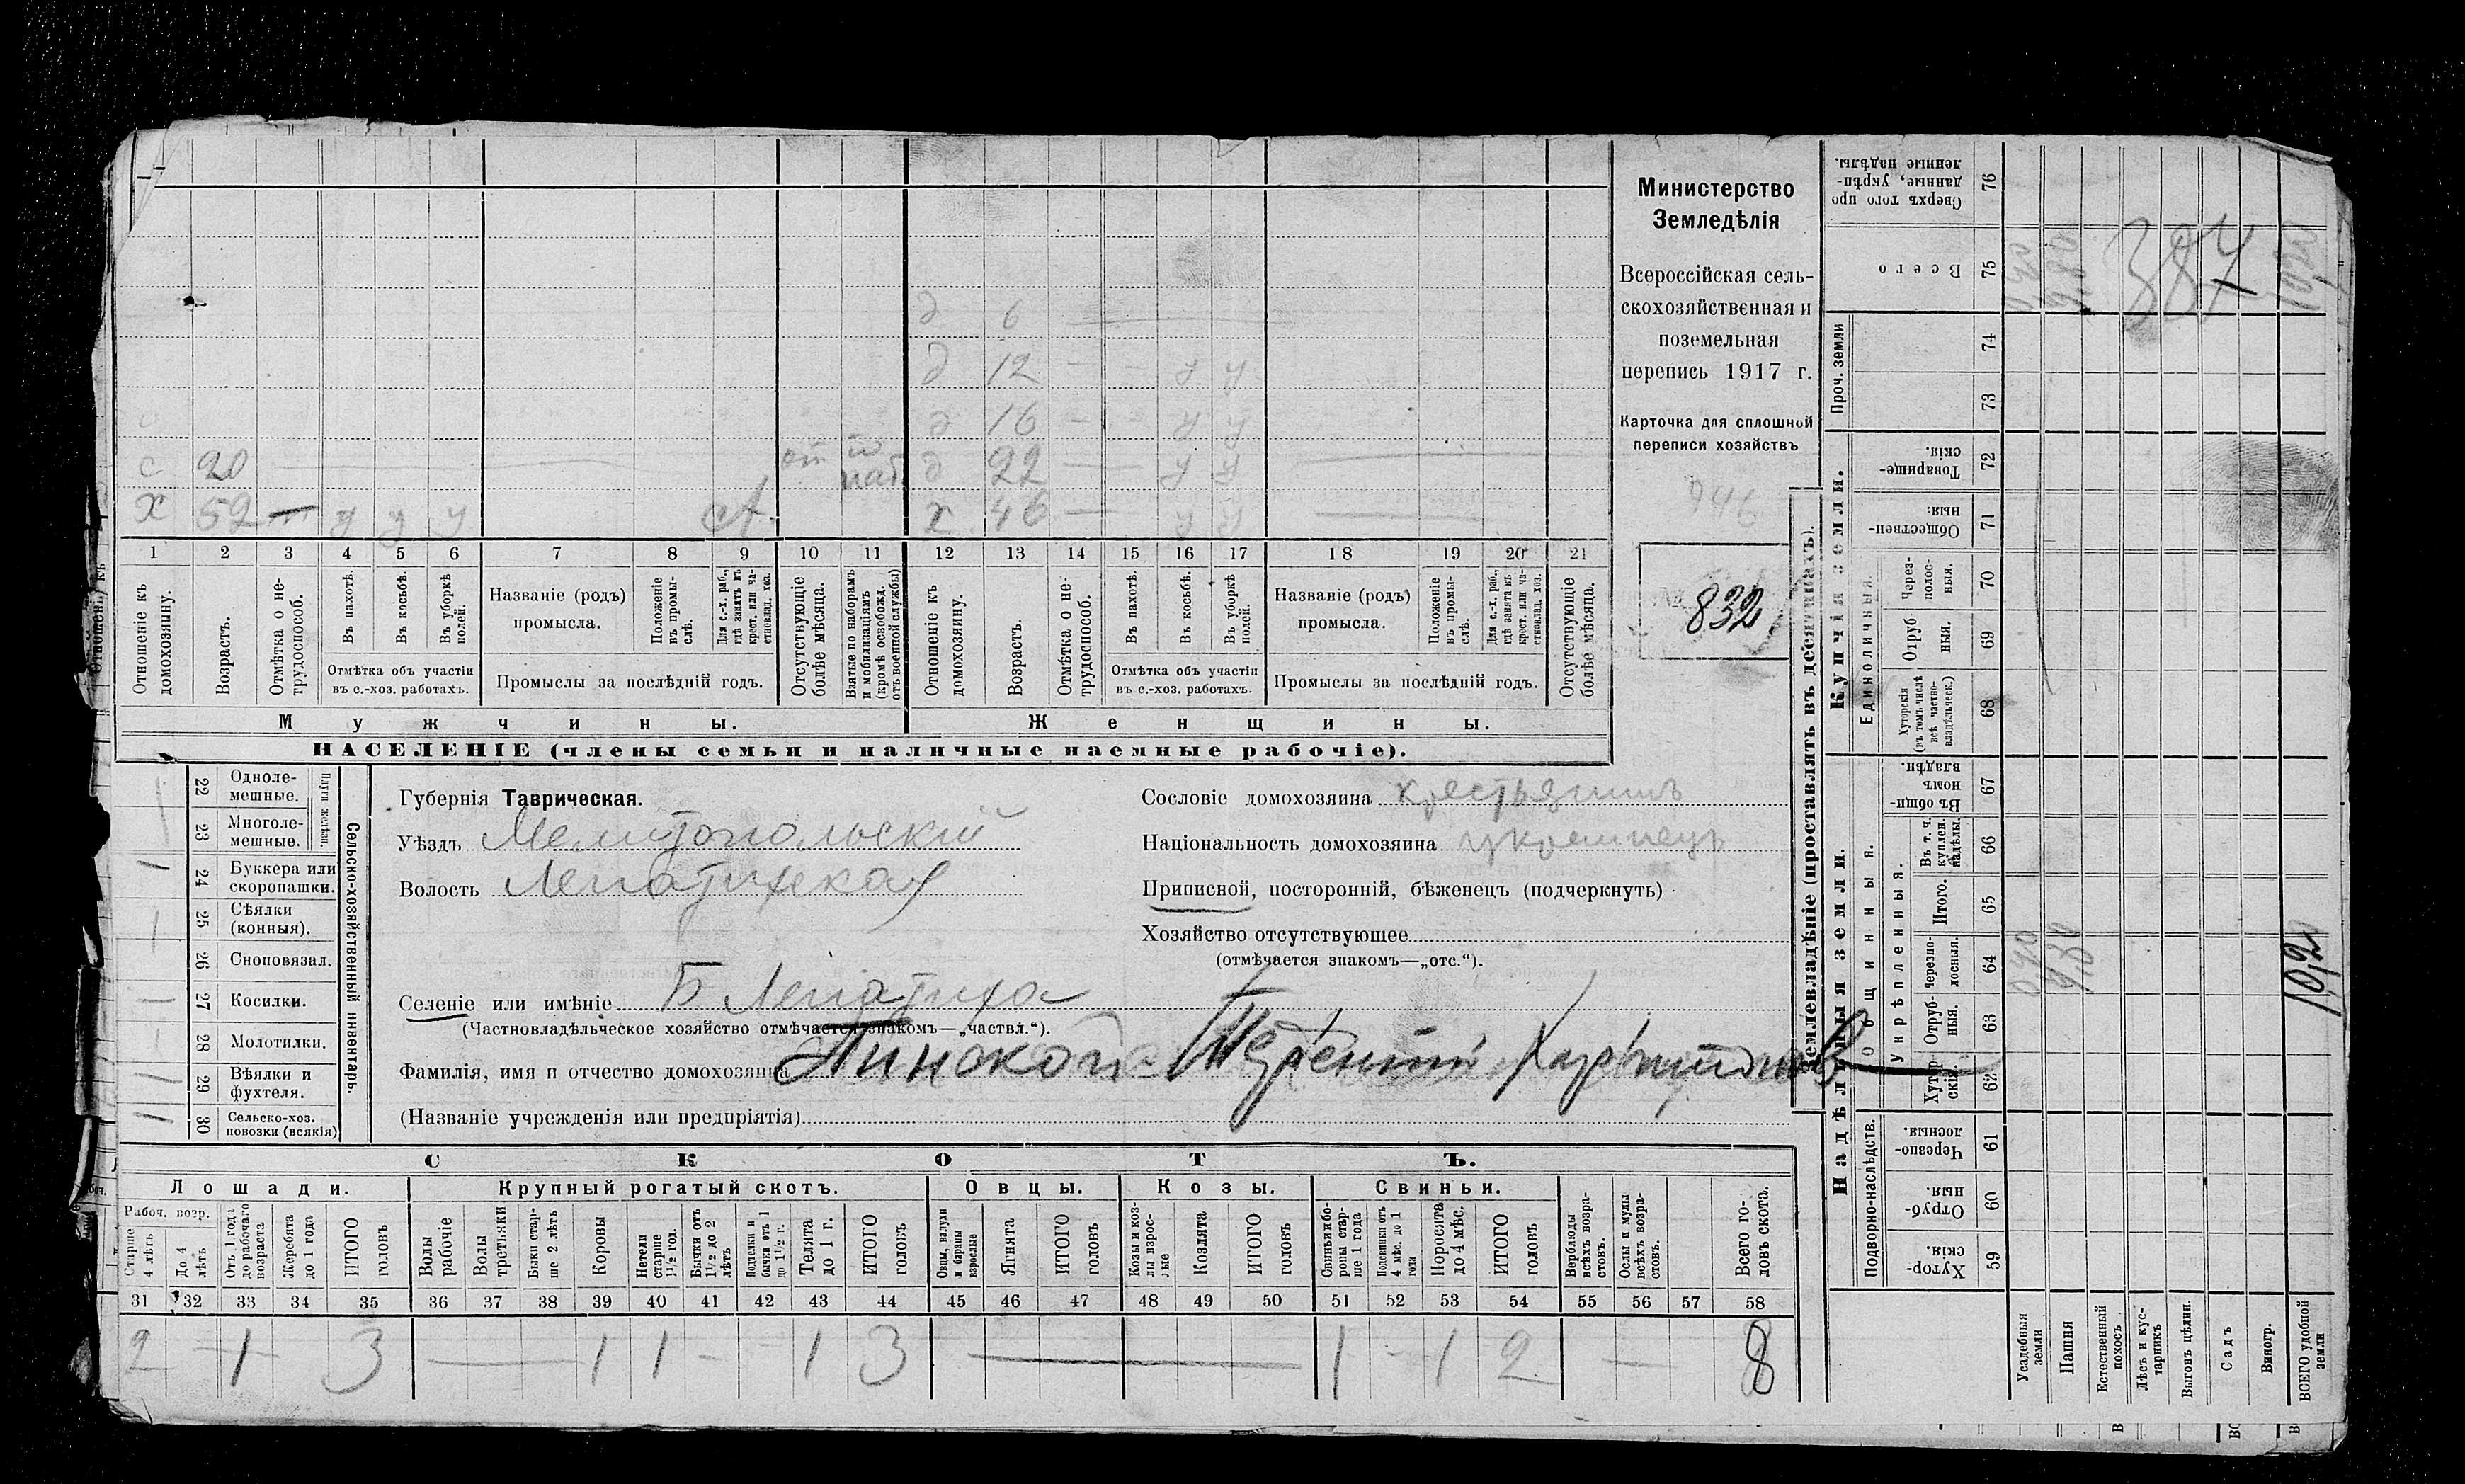 д 6
д 12 — — у у
с д 16 — — у у
с 20 от по моб. д 22 — у у
х 52 — у у у х 46 — у у
1 2 3 4 5 6 7 8 9 10 11 12 13 14 15 16 17 18 19 20 21
Отношеніе къ домохозяину.
Возрастъ.
Отмѣтка о не-трудоспособ.
Въ пахотѣ.
Въ косьбѣ.
Въ уборкѣ полей.
Отмѣтка объ участіи въ с.-хоз. работахъ.
Названіе (родъ) промысла.
Положеніе въ промы-слѣ.
Для с.-х. раб., гдѣ занятъ въ крест. или ча-стновлад. хоз.
Промыслы за послѣдній годъ.
Отсутствующіе болѣе мѣсяца.
Взятые по наборамъ и мобилизаціямъ (кромѣ освобожд. отъ военной службы)
Отношеніе къ домохозяину.
Возрастъ.
Отмѣтка о не-трудоспособ.
Въ пахотѣ.
Въ косьбѣ.
Въ уборкѣ полей.
Отмѣтка объ участіи въ с.-хоз. работахъ.
Названіе (родъ) промысла.
Положеніе въ промы-слѣ.
Для с.-х. раб., гдѣ занята въ крест. или ча-стновлад. хоз.
Промыслы за послѣдній годъ.
Отсутствующіе болѣе мѣсяца.
Мужчины. Женщины.
НАСЕЛЕНІЕ (члены семьи и наличные наемные рабочіе).
Министерство
Земледѣлія
Всероссійская сель-
скохозяйственная и
поземельная
перепись 1917 г.
Карточка для сплошной
переписи хозяйствъ
832
22 Одноле-мешные.
23 Многоле-мешные.
Плуги желѣзн.
24 Буккера или скоропашки.
25 Сѣялки (конныя).
26 Сноповязал.
27 Косилки.
28 Молотилки.
29 Вѣялки и фухтеля.
30 Сельско-хоз. повозки (всякія)
Сельско-хозяйственный инвентарь.
Губернія Таврическая.
Уѣздъ Мелитопольскій
Волость Лепатихская
Селеніе или имѣніе Б Лепатиха
(Частновладѣльческое хозяйство отмѣчается знакомъ—„частвл.“).
Фамилія, имя и отчество домохозяина Терентій Харитонов
(Названіе учрежденія или предпріятія)
Сословіе домохозяина крестьянинъ
Національность домохозяина украинецъ
Приписной, посторонній, бѣженецъ (подчеркнуть)
Хозяйство отсутствующее
(отмѣчается знакомъ—„отс.“).
СКОТЪ.
Лошади. Крупный рогатый скотъ. Овцы. Козы. Свиньи.
Рабоч. возр.
Старше 4 лѣтъ
До 4 лѣтъ
Отъ 1 года до рабочаго возраста
Жеребята до 1 года
ИТОГО головъ
Волы рабочіе
Волы третьяки
Быки стар-ше 2 лѣтъ
Коровы
Нетели старше 1½ год.
Бычки отъ 1½ до 2 лѣтъ
Подтелки и бычки отъ 1 до 1½ г.
Телята до 1 г.
ИТОГО головъ
Овцы, валухи и бараны взрослые
Ягнята
ИТОГО головъ
Козы и коз-лы взрос-лые
Козлята
ИТОГО головъ
Свиньи и бо-ровы стар-ше 1 года
Подсвинки отъ 4 мѣс. до 1 года
Поросята до 4 мѣс.
ИТОГО головъ
Верблюды всѣхъ возра-стовъ.
Ослы и мулы всѣхъ возра-стовъ.
Всего го-ловъ скота.
31 32 33 34 35 36 37 38 39 40 41 42 43 44 45 46 47 48 49 50 51 52 53 54 55 56 57 58
2 — 1 — 3 — 1 1 - - 1 3 — 1 - 1 2 — 8
Землевладѣніе (проставлять въ десятинахъ).
Сверхъ того про-данные, укрѣп-ленные надѣлы. 76
Всего 75 0,40 9,80 10,20
387
Проч. земли 74 73
Купчія земли.
Товарище-скія. 72
Обществен-ныя. 71
Единоличныя.
Через-полос-ныя. 70
Отруб-ныя. 69
Хуторскія (въ томъ числѣ всѣ частно-владѣльческ.) 68
Надѣльныя земли.
Общинныя.
Въ общи-номъ владѣн. 67
Укрѣпленныя.
Въ т. ч. куплен. надѣлы. 66
Итого. 65
Черезпо-лосныя. 64 0,40 9,80 10,20
Отруб-ныя. 63
Хутор-скія. 62
Подворно-наслѣдств.
Черезпо-лосныя. 61
Отруб-ныя. 60
Хутор-скія. 59
Усадебныя земли
Пашня
Естественный покосъ
Лѣсъ и кус-тарникъ
Выгонъ цѣлин.
Садъ
Виногр.
ВСЕГО удобной земли